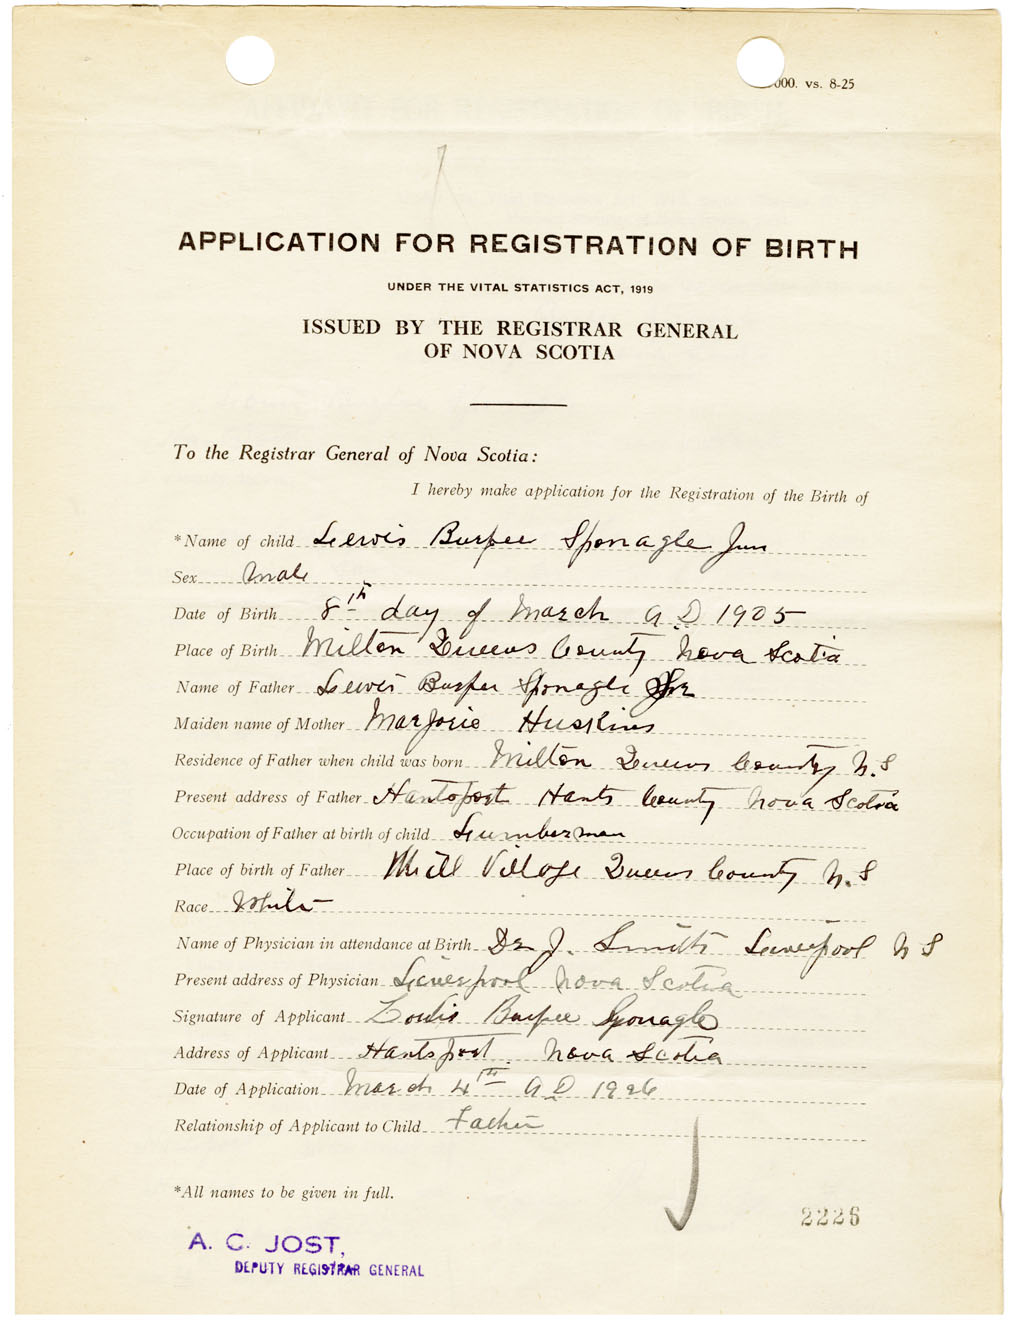 000. vs. 8-25
APPLICATION FOR REGISTRATION OF BIRTH
UNDER THE VITAL STATISTICS ACT, 1919
ISSUED BY THE REGISTRAR GENERAL
OF NOVA SCOTIA
To the Registrar General of Nova Scotia:
I hereby make application for the Registration of the Birth of
*Name of child Lewis Burpee Sponagle Jun
Sex Male
Date of Birth 8th day of March A.D 1905
Place of Birth Milton Queens County Nova Scotia
Name of Father Lewis Burpee Sponagle
Maiden name of Mother Marjorie Huskins
Residence of Father when child was born Milton Queens County N.S
Present address of Father Hantsport Hants County Nova Scotia
Occupation of Father at birth of child Lumberman
Place of birth of Father Mill Village Queens County N.S
Race White
Name of Physician in attendance at Birth Dr J. Smith Liverpool N S
Present address of Physician Liverpool Nova Scotia
Signature of Applicant Louis Burpee Sponagle
Address of Applicant Hantsport. Nova Scotia
Date of Application March 4th A D 1926
Relationship of Applicant to Child Father
*All names to be given in full.
2226
A. C. JOST,
DEPUTY REGISTRAR GENERAL